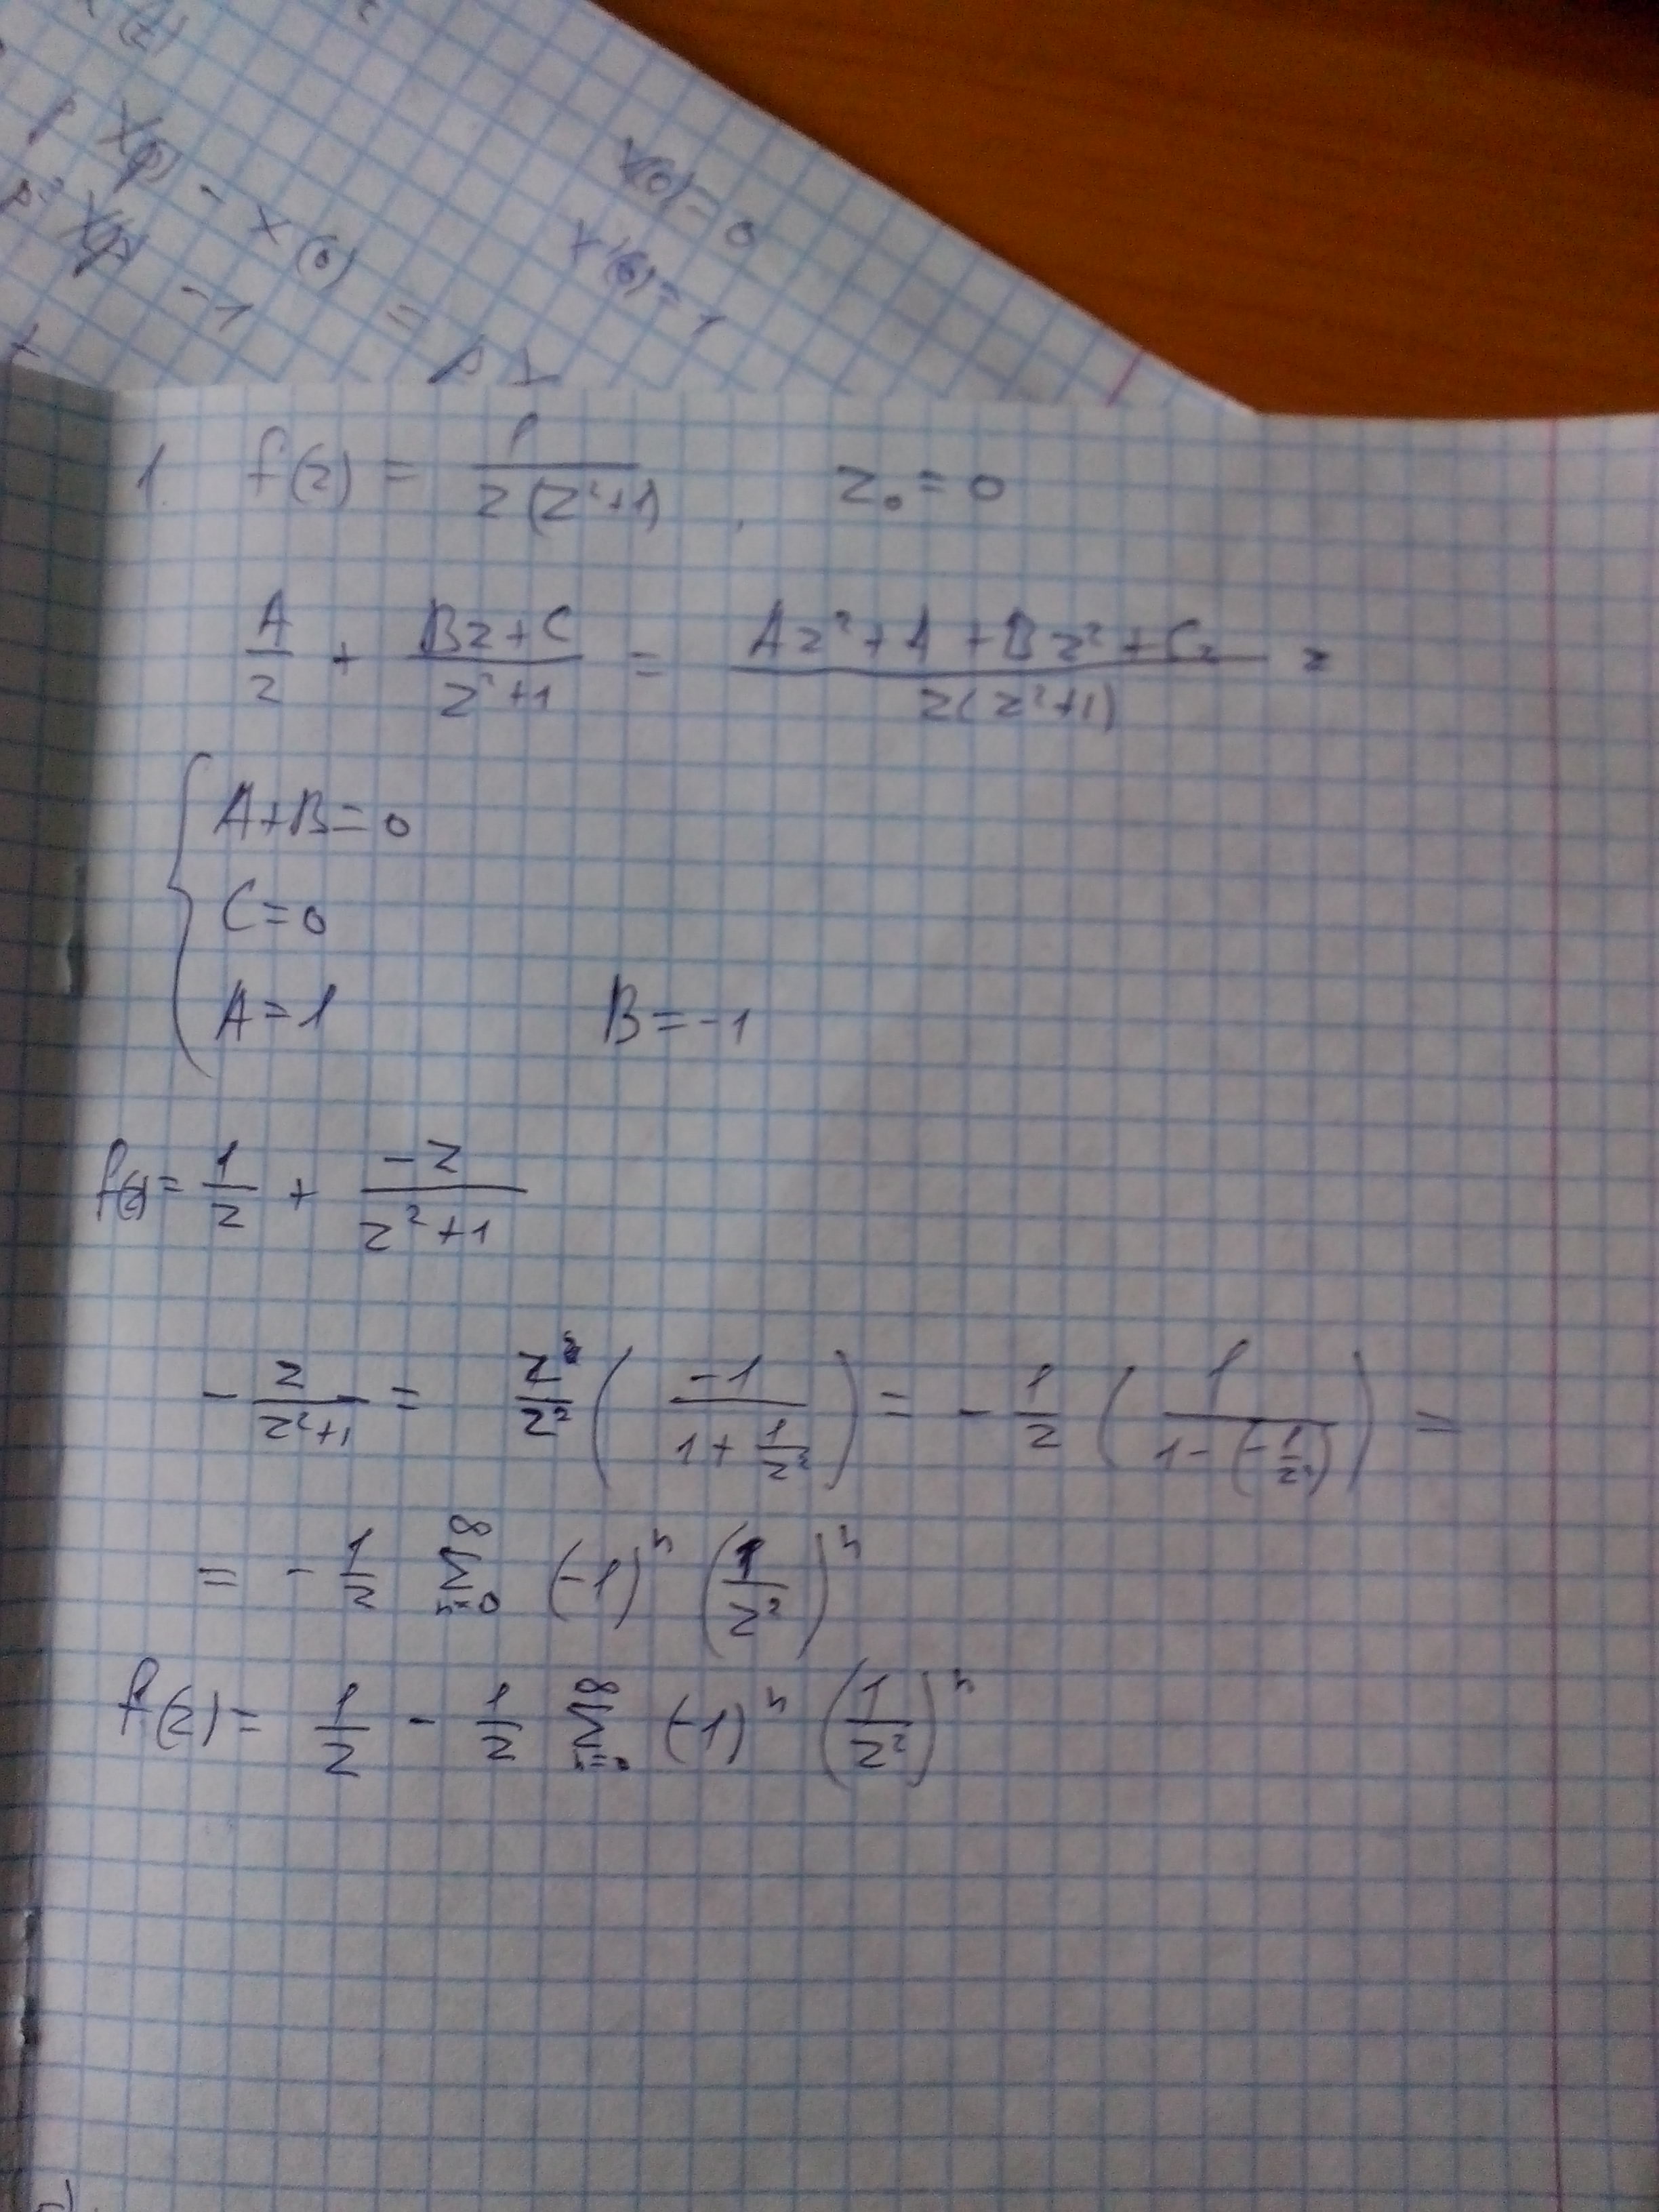 X(p) - X(0) =
X(0) = 0
X'(0) = 1
- 1
1. f(z) = 1/(z(z²+1)), z₀ = 0
A/z + (Bz+C)/(z²+1) = (Az²+A+Bz²+Cz)/(z(z²+1)) =
A+B=0
C=0
A=1 B=-1
f(z) = 1/z + (-z)/(z²+1)
- z/(z²+1) = z/z² ( -1/(1+1/z²) ) = - 1/z ( 1/(1-(-1/z²)) ) =
= - 1/z ∑_{n=0}^{∞} (-1)ⁿ (1/z²)ⁿ
f(z) = 1/z - 1/z ∑_{n=0}^{∞} (-1)ⁿ (1/z²)ⁿ